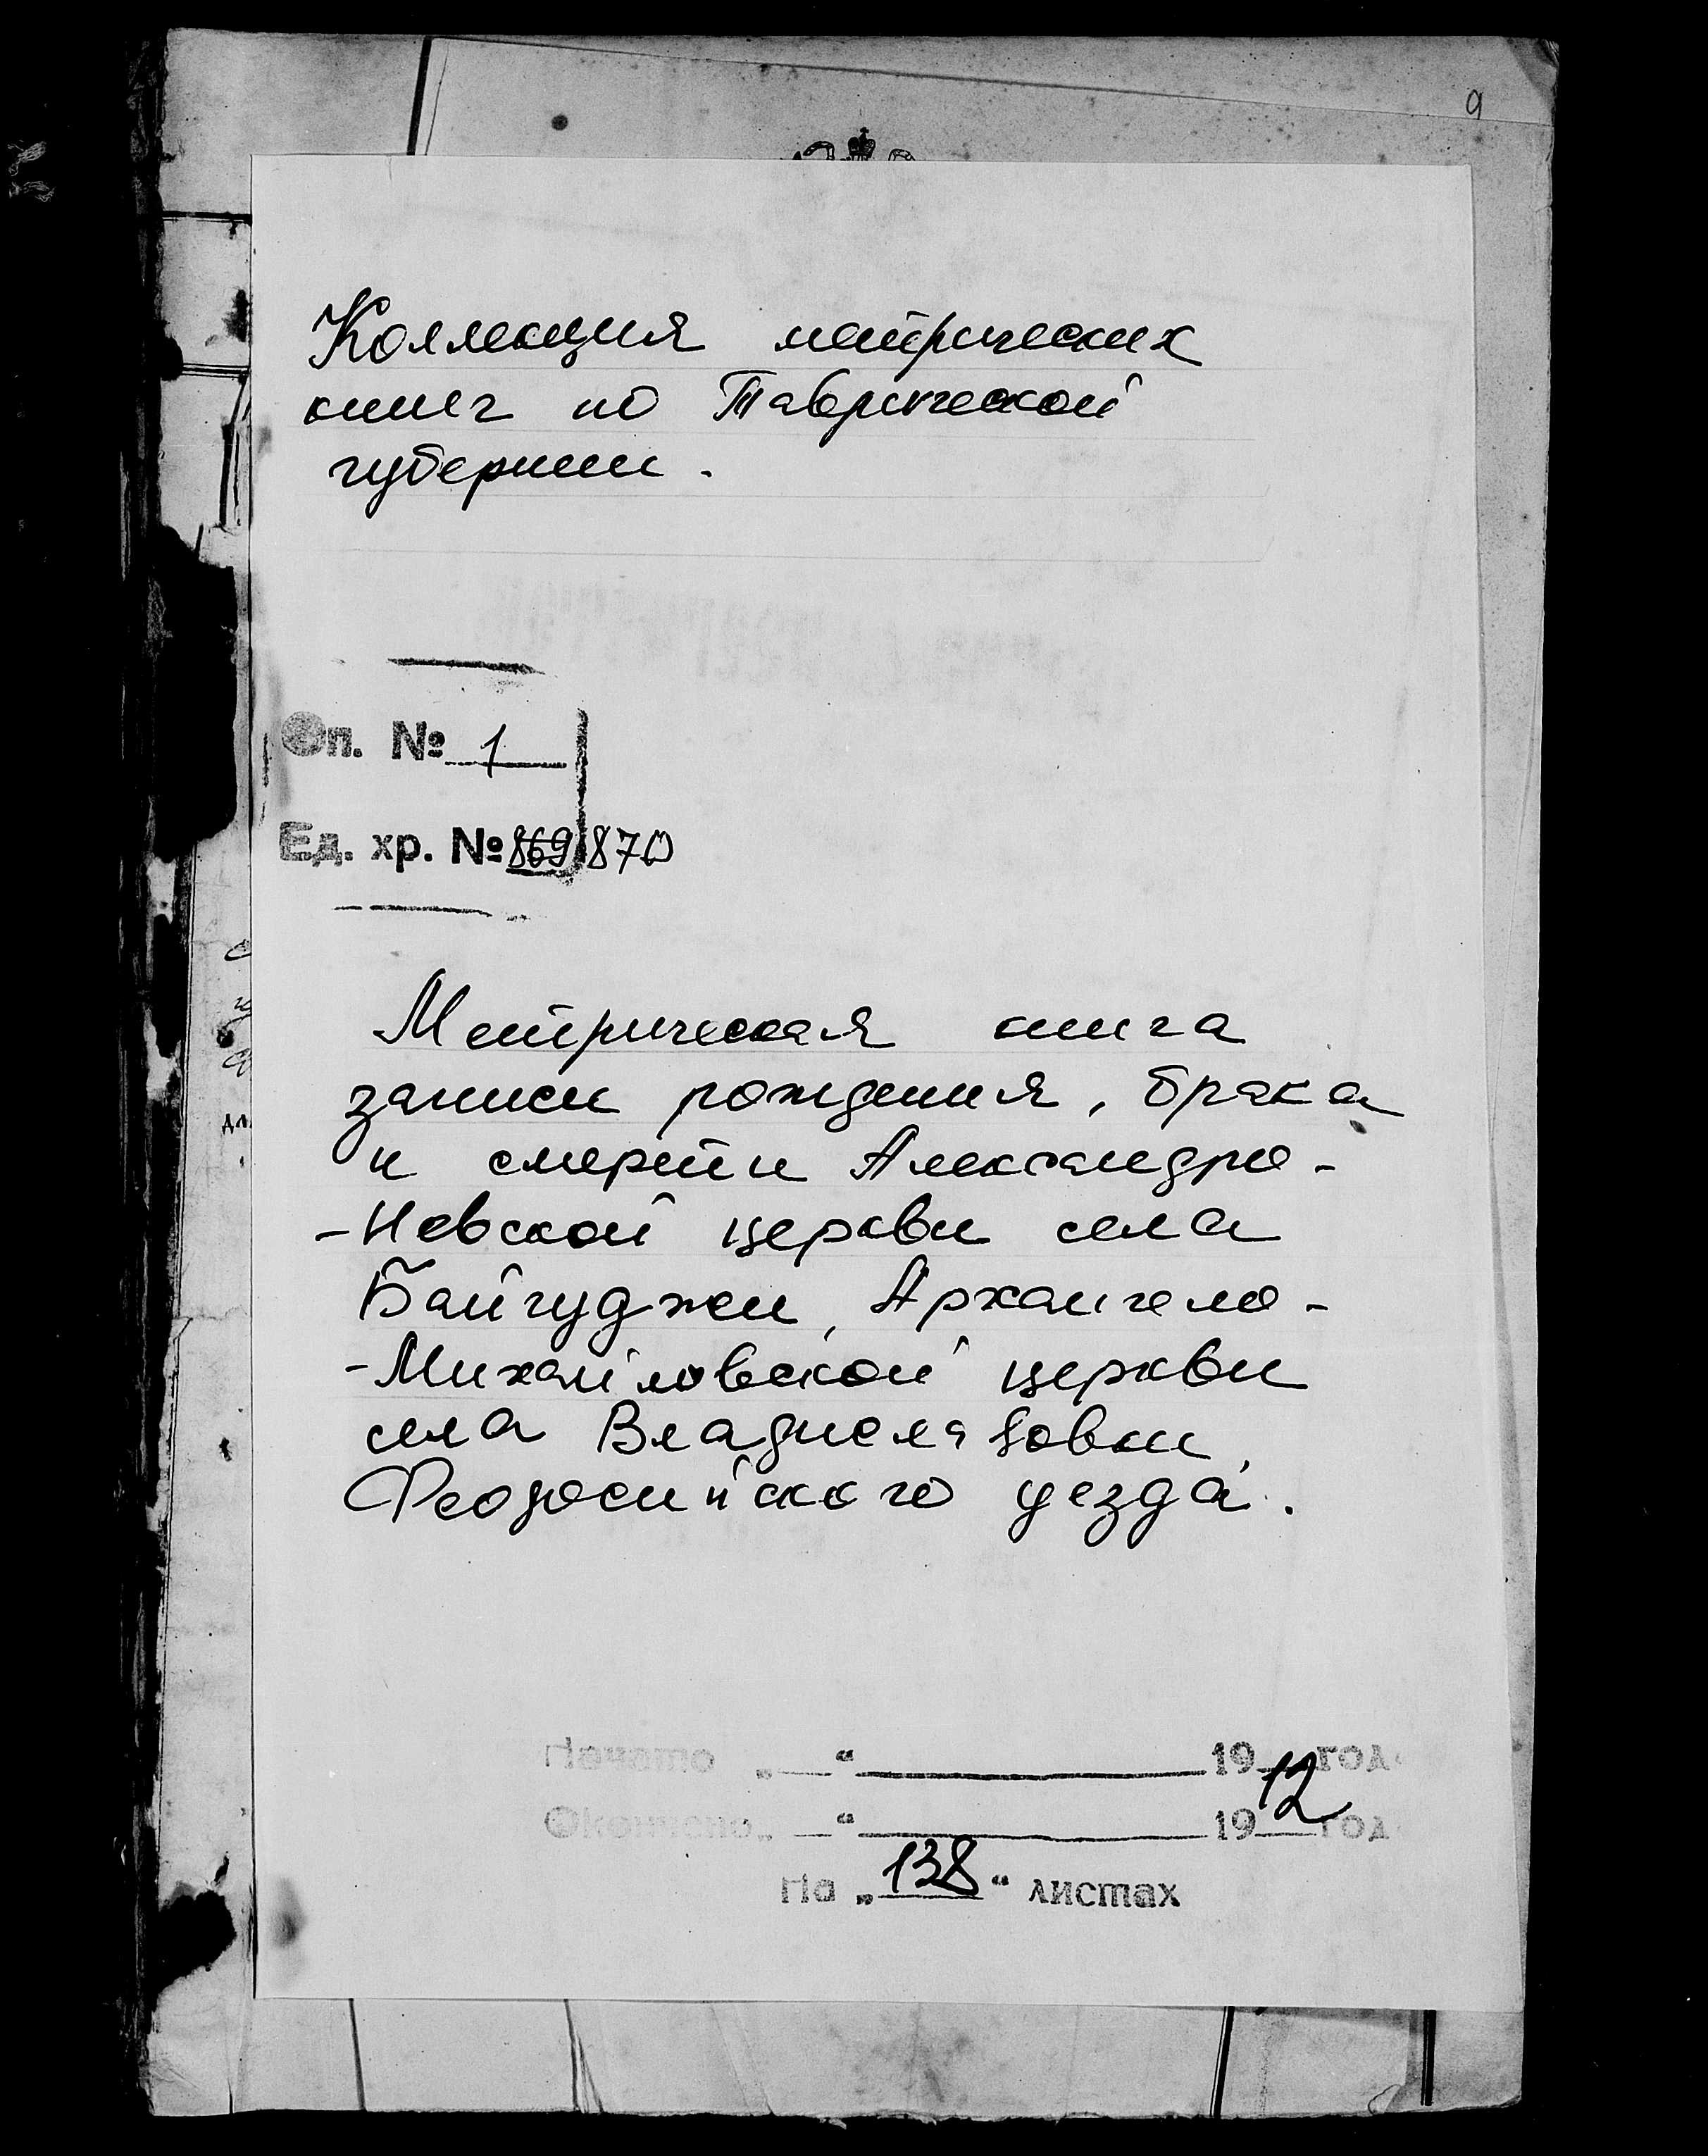 9
Коллекция метрических
книг по Таврической
губернии.
Оп. № 1
Ед. хр. № 869 870
Метрическая книга
записи рождения, брака
и смерти Александро-
-Невской церкви села
Байгуджи, Архангело-
-Михайловской церкви
села Владиславовки,
Феодосийского уезда.
Начато „__“ ______ 1912 год
Окончено „__“ ______ 19__ год
На „138“ листах